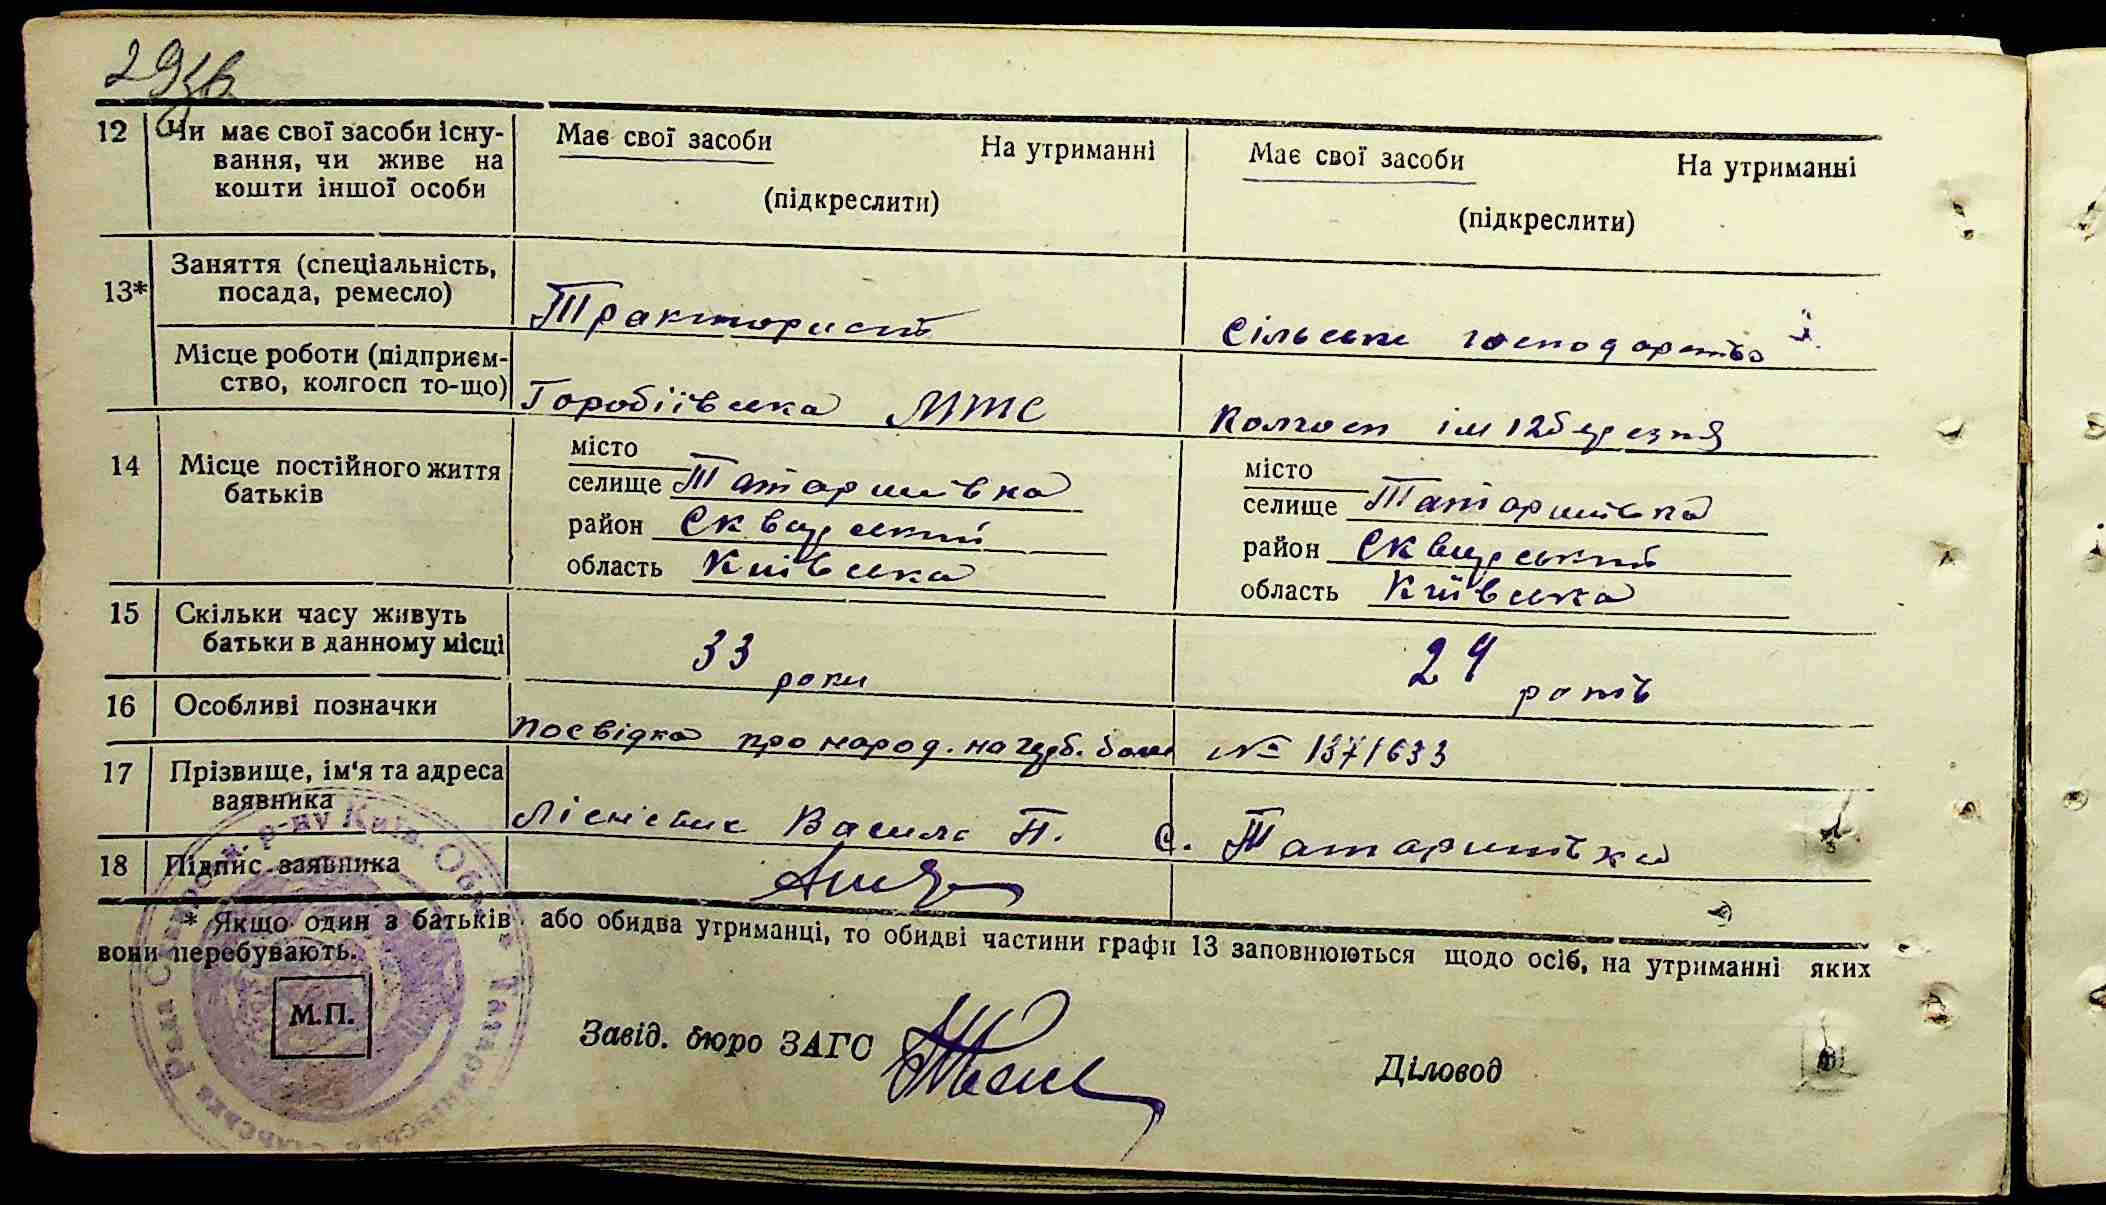 29зв
12 Чи має свої засоби існу- Має свої засоби На утриманні Має свої засоби На утриманні
вання, чи живе на
кошти іншої особи (підкреслити) (підкреслити)
Заняття (спеціальність,
13* посада, ремесло) Тракторист Сільське господарство
Місце роботи (підприєм-
ство, колгосп то-що) Горобіївська МТС Колгосп ім 12 березня
14 Місце постійного життя місто місто
батьків селище Татаринівка селище Татаринівка
район Сквирський район Сквирський
область Київська область Київська
15 Скільки часу живуть
батьки в данному місці 33 роки 24 років
16 Особливі позначки Посвідка про народ. на № 1371633
17 Прізвище, ім'я та адреса
заявника Василь П. с. Татаринівка
18 Підпис заявника
* Якщо один з батьків або обидва утриманці, то обидві частини графи 13 заповнюються щодо осіб, на утриманні яких
вони перебувають.
М.П.
Завід. бюро ЗАГС Діловод
р-ну Київ. Обл. Татаринівська Сільська Рада